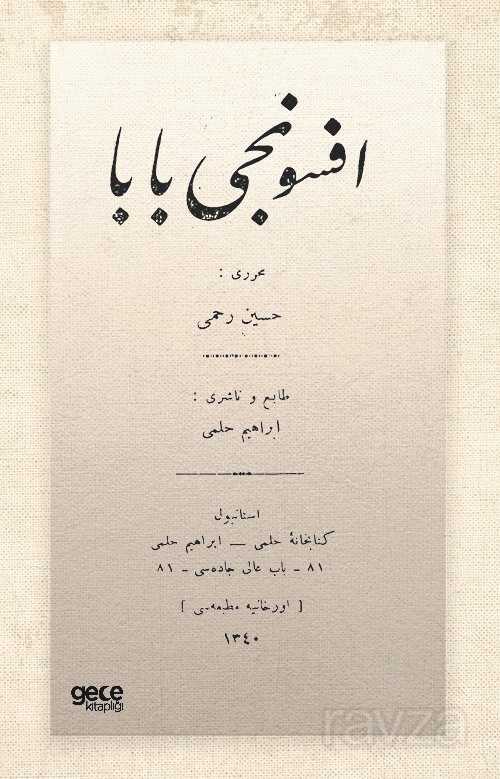 افسونجی بابا
محرری :
حسین رحمی
طابع و ناشری :
ابراهیم حلمی
استانبول
كتابخانهٔ حلمی — ابراهیم حلمی
٨١ - باب عالی جاده‌سی - ٨١
[ اورخانیه مطبعه‌سی ]
١٣٤٠
gece
kitaplığı
ravza